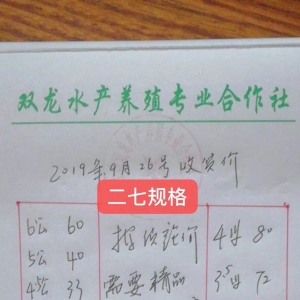 双龙水产养殖专业合作社
2019年9月26号收货价
二七规格
6公 60 4母 80
5公 40 需要精品 3.5母 72
4.5公 33